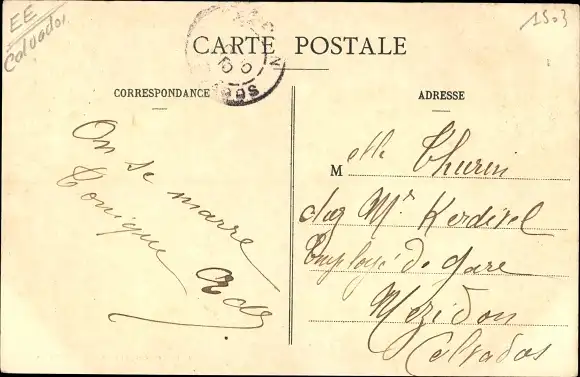 EE
Calvados
1503
CARTE POSTALE
CORRESPONDANCE
On se marre
Tonique
ADRESSE
Melle Thurin
chez Mr Kerdirel
Employé de gare
Mezidon
Calvados